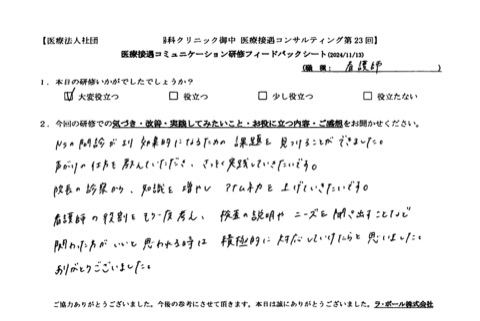 【医療法人社団 科クリニック御中 医療接遇コンサルティング第23回】
医療接遇コミュニケーション研修フィードバックシート(2024/11/13)
(職種：看護師)
1．本日の研修いかがでしたでしょうか？
☑大変役立つ □役立つ □少し役立つ □役立たない
2．今回の研修での気づき・改善・実践してみたいこと・お役に立つ内容・ご感想をお聞かせください。
Nsの問診がより効果的になるための課題を見つけることができました。
声がけの仕方を教えていただき、さっそく実践していきたいです。
院長の診察から、知識を増やし アイムネカを上げていきたいです。
看護師の役割をもう一度考え、検査の説明やニーズを聞き出すことなど
関わった方がいいと思われる時は 積極的に対応していけたらと思いました。
ありがとうございました。
ご協力ありがとうございました。今後の参考にさせて頂きます。本日は誠にありがとうございました。ラ・ポール株式会社